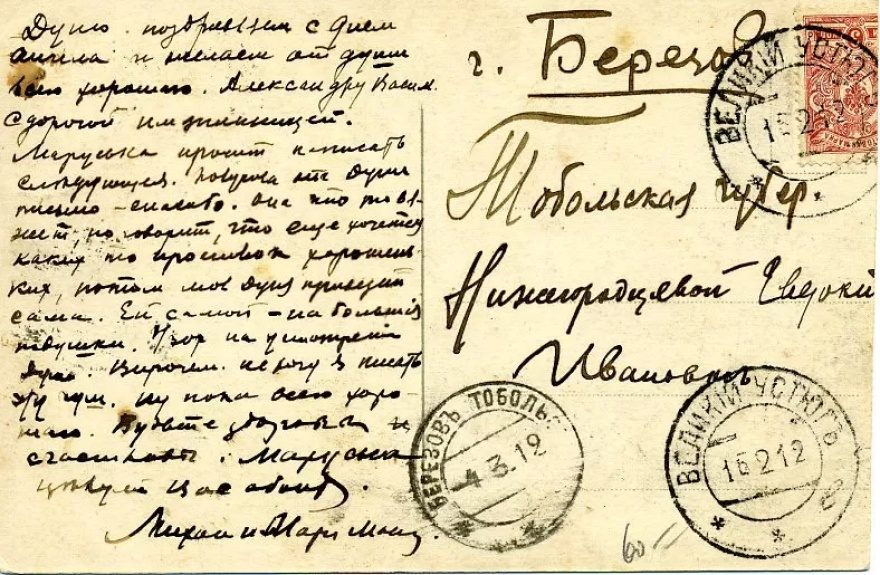 Дуню поздравляем с днем
ангела и желаем от души
всего хорошаго. Александру Васил.
с дорогой имянинницей.
Маруська просит написать
следующее. Получила от Дуни
письмо - спасибо. Она что то вя-
жет, но говорит, что еще хочется
каких то прошивок хорошень-
ких, потом мол Дуня приедет
сама. Ей самой - на большия
подушки. Узор на усмотрение
Впрочем не могу я писать
эту ну пока всего хоро-
шаго. Будьте здоровы и
счастливы. Маруська
целует Вас обоих.
Михаил и
г. Березов
Тобольская губер.
Нижегородцевой Евдокии
Ивановнъ
ВЕЛИКІЙ УСТЮГ
15 2 12
БЕРЕЗОВЪ ТОБОЛЬ.
4.3.12
ВЕЛИКІЙ УСТЮГЪ
15 2 12
60=